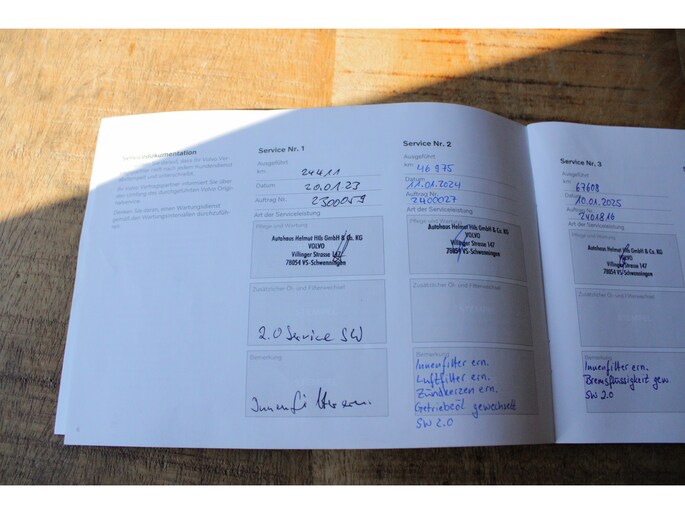 Servicedokumentation
Service Nr. 1
Ausgeführt
km 24411
Datum 20.01.23
Auftrag Nr. 2300059
Art der Serviceleistung
Pflege und Wartung
Autohaus Helmut Hils GmbH & Co. KG
VOLVO
Villinger Strasse 147
78054 VS-Schwenningen
Zusätzlicher Öl- und Filterwechsel
2.0 Service SW
Bemerkung
Innenfilter ern.
Service Nr. 2
Ausgeführt
km 46 975
Datum 11.01.2024
Auftrag Nr. 2400027
Art der Serviceleistung
Pflege und Wartung
Autohaus Helmut Hils GmbH & Co. KG
VOLVO
Villinger Strasse 147
78054 VS-Schwenningen
Zusätzlicher Öl- und Filterwechsel
Bemerkung
Innenfilter ern.
Luftfilter ern.
Zündkerzen ern.
Getriebeöl gewechselt
SW 2.0
Service Nr. 3
Ausgeführt
km 67608
Datum 10.01.2025
Auftrag Nr. 2401816
Art der Serviceleistung
Pflege und Wartung
Autohaus Helmut Hils GmbH & Co. KG
VOLVO
Villinger Strasse 147
78054 VS-Schwenningen
Zusätzlicher Öl- und Filterwechsel
Bemerkung
Innenfilter ern.
Bremsflüssigkeit gew
SW 2.0